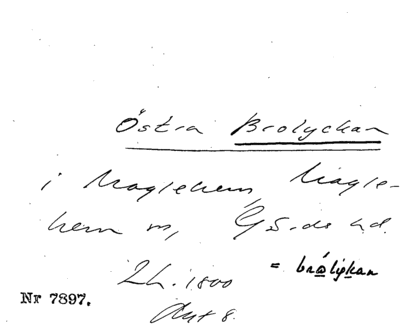 Östra Brolyckan
i Maglehem, Magle-
hem sn, Gs.ds hd.
Lh. 1800
= brålyckan
Nr 7897.
Akt 8.